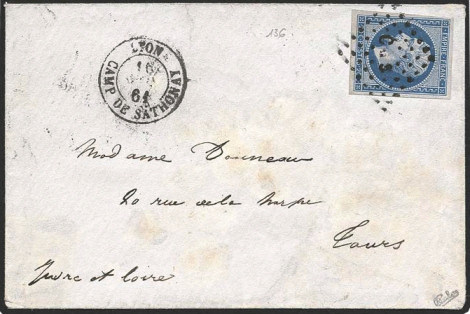 136
LYON
CAMP DE SATHONAY
16
61
EMPIRE FRANC
Madame Donneau
20 rue de la harpe
Tours
Indre et Loire